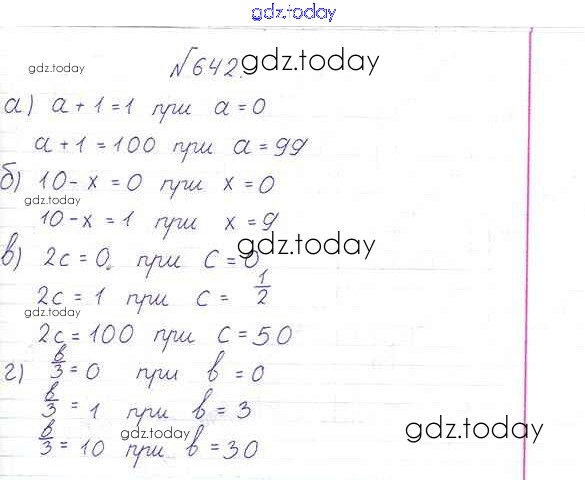 gdz.today
gdz.today №642. gdz.today
а) a + 1 = 1 при a = 0
a + 1 = 100 при a = 99
б) 10 - x = 0 при x = 0
gdz.today
10 - x = 1 при x = 9
gdz.today
в) 2c = 0 при c = 0
2c = 1 при c = 1/2
gdz.today
2c = 100 при c = 50
г) в/3 = 0 при в = 0
в/3 = 1 при в = 3
gdz.today gdz.today
в/3 = 10 при в = 30